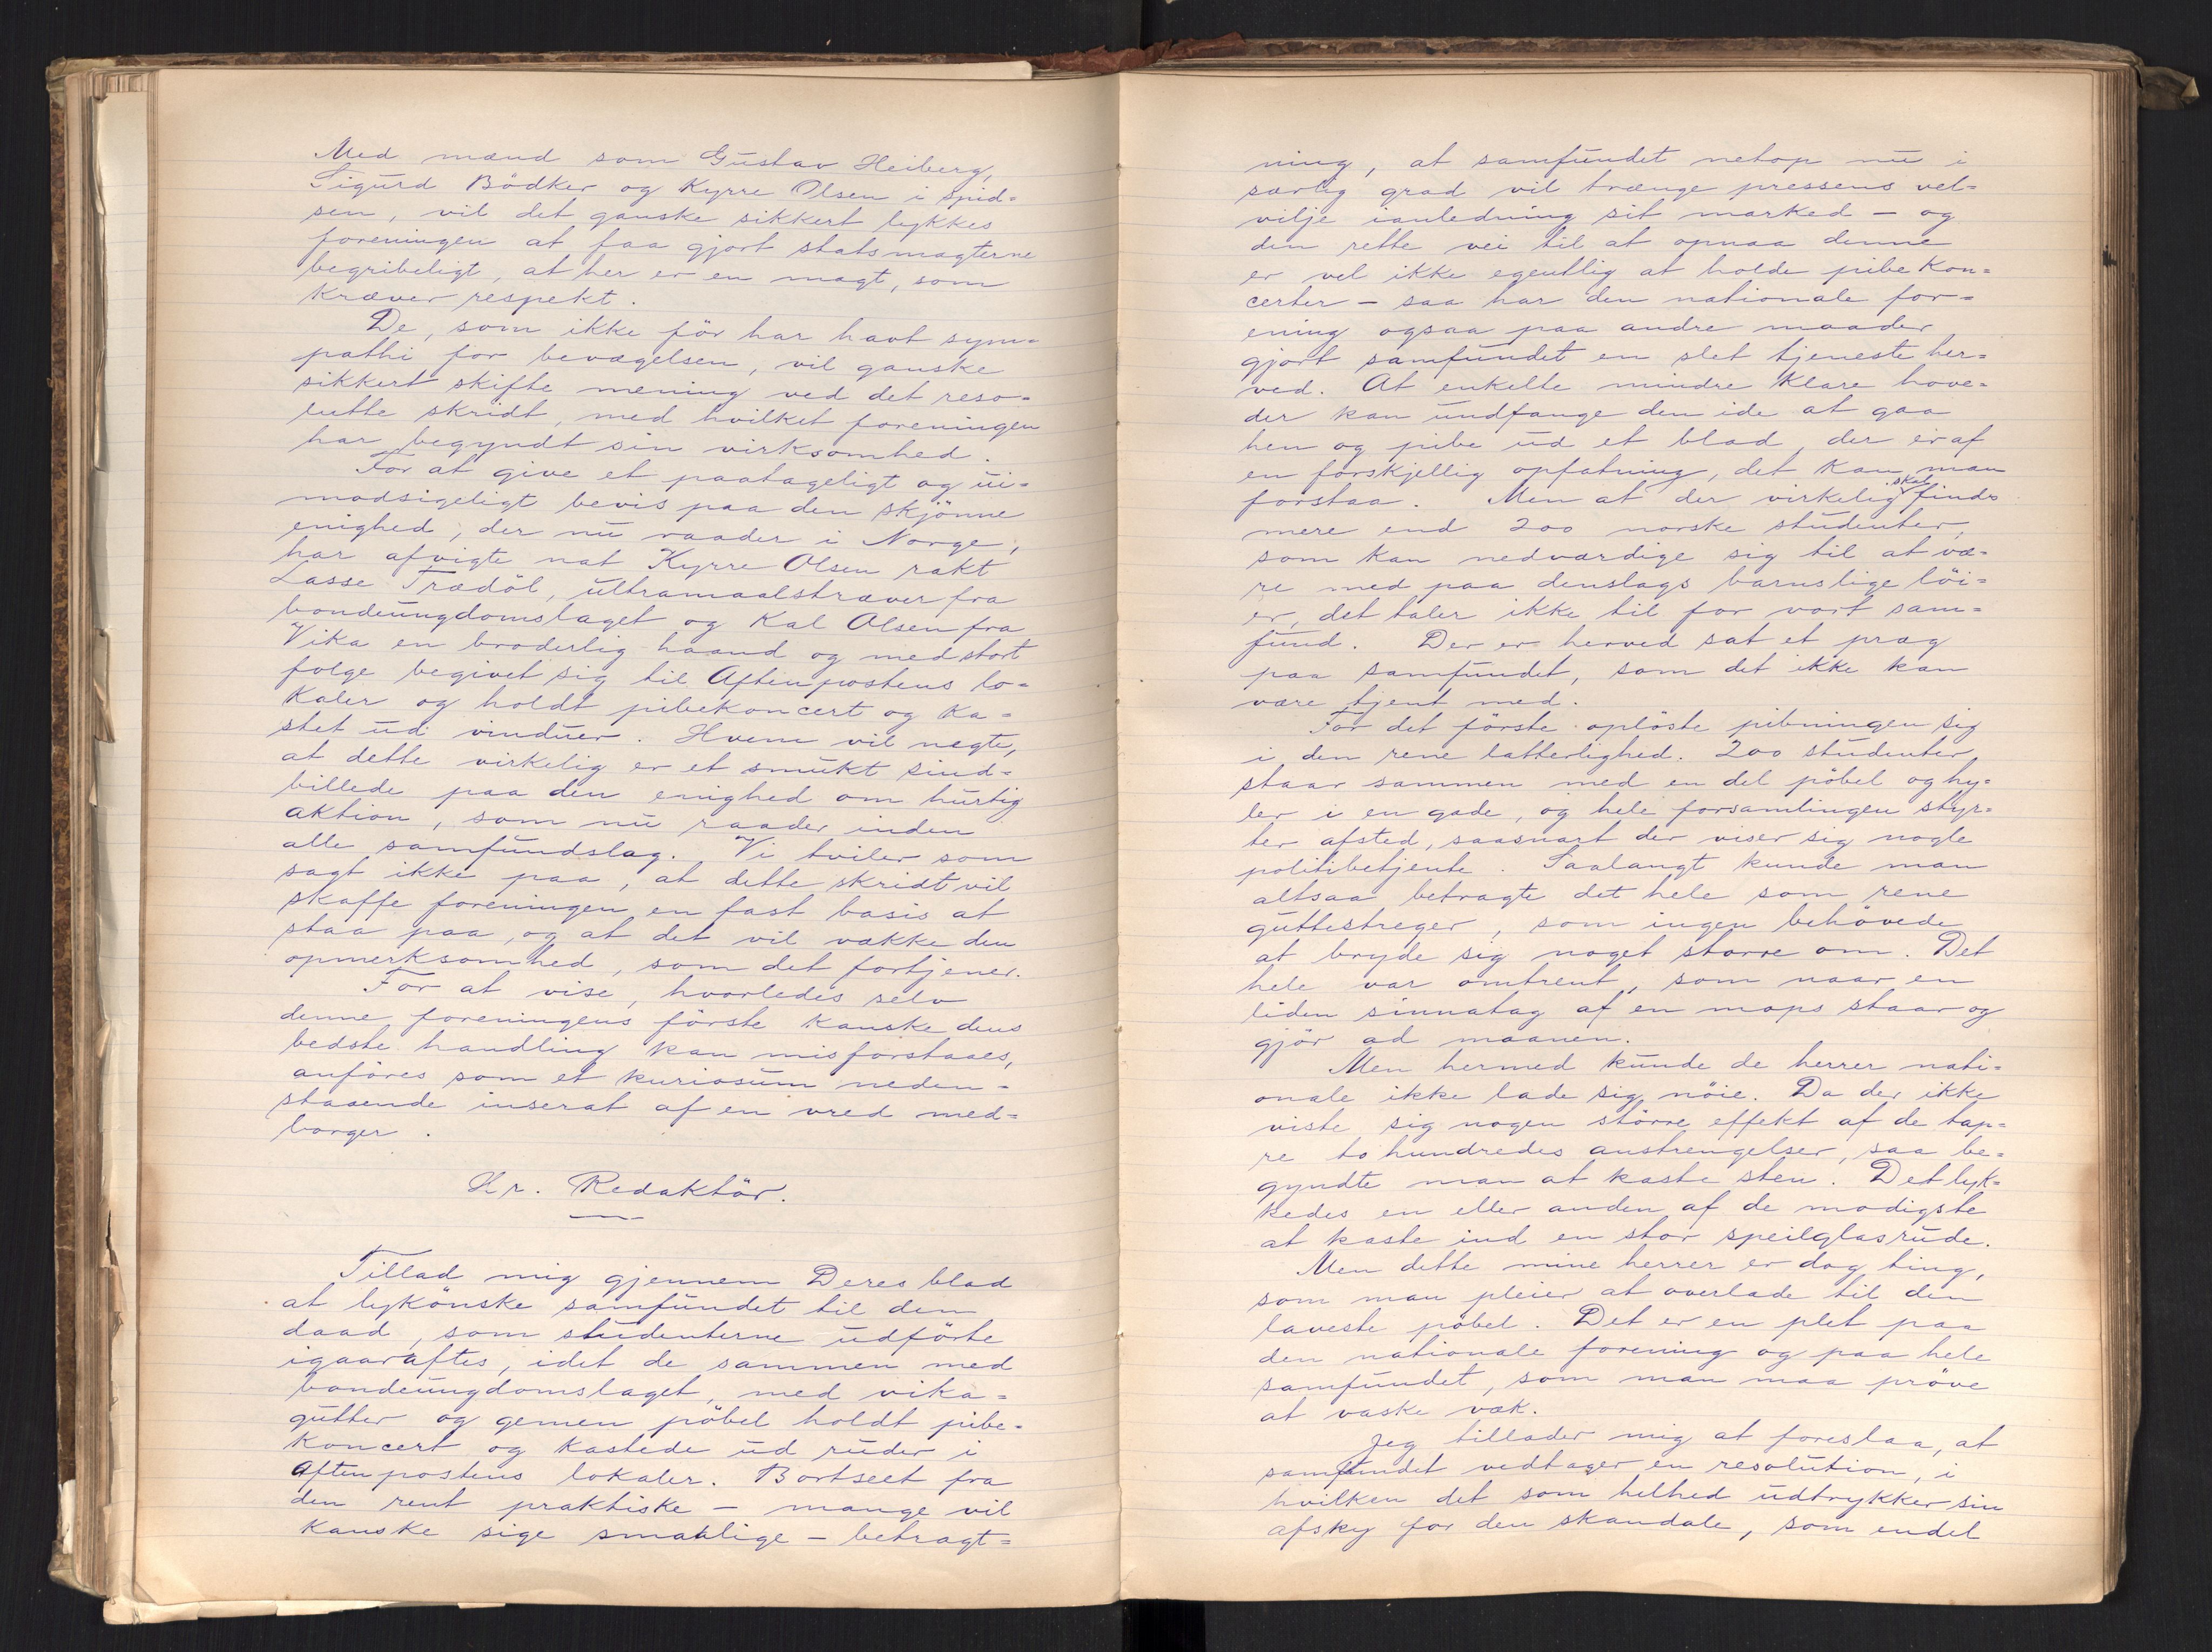 Med mænd som Gustav Heiberg,
Sigurd Bödker og Kyrre Olsen i spid=
sen, vil det ganske sikkert lykkes
foreningen at faa gjort statsmagterne
begribeligt, at her er en magt, som
kræver respekt.
De, som ikke för har havt sym=
pathi for bevægelsen, vil ganske
sikkert skifte mening ved det reso=
lutte skridt, med hvilket foreningen
har begyndt sin virksomhed.
For at give et paatageligt og ui=
modsigeligt bevis paa den skjönne
enighed, der nu raader i Norge,
har afvigte nat Kyrre Olsen rakt
Lasse Trædöl, ultramaalstræver fra
bondeungdomslaget og Kal Olsen fra
Vika en broderlig haand og med stort
følge begivet sig til Aftenpostens lo=
kaler og holdt pibekoncert og ka=
stet ud vinduer. Hvem vil negte,
at dette virkelig er et smukt sind=
billede paa den enighed om hurtig
aktion, som nu raader inden
alle samfundslag. Vi tviler som
sagt ikke paa, at dette skridt vil
skaffe foreningen en fast basis at
staa paa, og at det vil vække den
opmerksomhed, som det fortjener.
For at vise, hvorledes selv
denne foreningens förste kanske dens
bedste handling kan misforstaaes,
anföres som et kuriosum neden=
staaende inserat af en vred med=
borger.
Hr. Redaktör.
Tillad mig gjennem Deres blad
at lykönske samfundet til den
daad, som studenterne udförte
igaaraftes, idet de sammen med
bondeungdomslaget, med vika=
gutter og gemen pöbel holdt pibe=
koncert og kastede ud ruder i
Aftenpostens lokaler. Bortseet fra
den rent praktiske – mange vil
kanske sige smaalige – betragt=
ning, at samfundet netop nu i
særlig grad vil trænge pressens vel=
vilje ianledning sit marked – og
den rette vei til at opnaa denne
er vel ikke egentlig at holde pibekon=
certer – saa har den nationale for=
ening ogsaa paa andre maader
gjort samfundet en slet tjeneste her=
ved. At enkelte mindre klare hove=
der kan undfange den ide at gaa
hen og pibe ud et blad, der er af
en forskjellig opfatning, det kan man
forstaa. Men at der virkelig skal findes
mere end 200 norske studenter,
som kan nedværdige sig til at væ=
re med paa denslags barnslige löi=
er, det taler ikke til for vort sam=
fund. Der er herved sat et præg
paa samfundet, som det ikke kan
være tjent med.
For det förste oplöste pibningen sig
i den rene latterlighed. 200 studenter
staar sammen med en del pöbel og hy=
ler i en gade, og hele forsamlingen styr=
ter afsted, saasnart der viser sig nogle
politibetjente. Saalangt kunde man
altsaa betragte det hele som rene
guttestreger, som ingen behövede
at bryde sig noget större om. Det
hele var omtrent, som naar en
liden sinnatag af en mops staar og
gjör ad maanen.
Men hermed kunde de herrer nati=
onale ikke lade sig nöie. Da der ikke
viste sig nogen större effekt af de tap=
re to hundredes anstrengelser, saa be=
gyndte man at kaste sten. Det lyk=
kedes en eller anden af de modigste
at kaste ind en stor speilglasrude.
Men dette mine herrer er dog ting,
som man pleier at overlade til den
laveste pöbel. Det er en plet paa
den nationale forening og paa hele
samfundet, som man maa pröve
at vaske væk.
Jeg tillader mig at foreslaa, at
samfundet vedtager en resolution, i
hvilken det som helhed udtrykker sin
afsky for den skandale, som endel